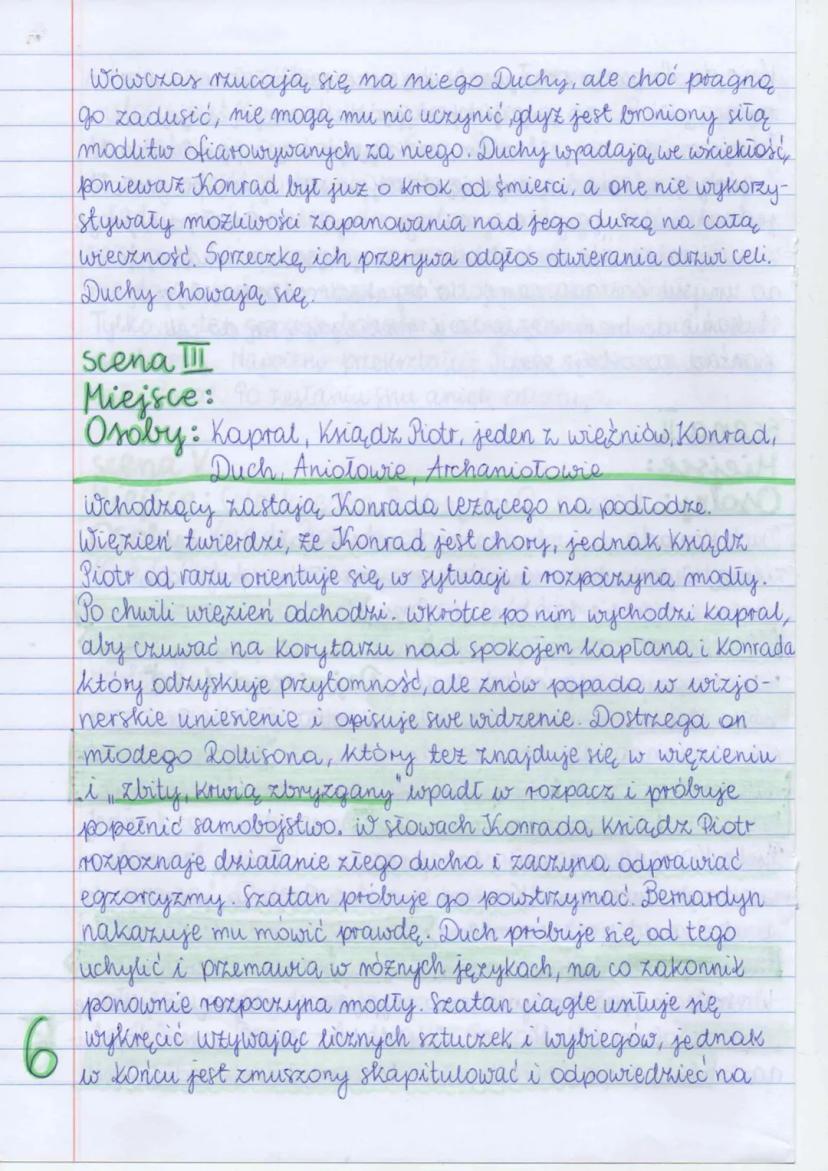 Wówczas rzucają się na niego Duchy, ale choć pragną
go zadusić, nie mogą mu nic uczynić, gdyż jest broniony siłą
modlitw ofiarowywanych za niego. Duchy wpadają we wściekłość,
ponieważ Konrad był już o krok od śmierci, a one nie wykorzy-
stywały możliwości zapanowania nad jego duszą na całą
wieczność. Sprzeczkę ich przerywa odgłos otwierania drzwi celi.
Duchy chowają się.
scena III
Miejsce:
Osoby: Kapral, Ksiądz Piotr, jeden z więźniów, Konrad,
Duch, Aniołowie, Archaniołowie
Wchodzący zastają Konrada leżącego na podłodze.
Więzień twierdzi, że Konrad jest chory, jednak ksiądz
Piotr od razu orientuje się w sytuacji i rozpoczyna modły.
Po chwili więzień odchodzi. wkrótce po nim wychodzi kapral,
aby czuwać na korytarzu nad spokojem kapłana i Konrada
który odzyskuje przytomność, ale znów popada w wizjo-
nerskie uniesienie i opisuje swe widzenie. Dostrzega on
młodego Rollisona, który też znajduje się w więzieniu
i „zbity, krwią zbryzgany" wpadł w rozpacz i próbuje
popełnić samobójstwo. W słowach Konrada, ksiądz Piotr
rozpoznaje działanie złego ducha i zaczyna odprawiać
egzorcyzmy. Szatan próbuje go powstrzymać. Bernardyn
nakazuje mu mówić prawdę. Duch próbuje się od tego
uchylić i przemawia w różnych językach, na co zakonnik
ponownie rozpoczyna modły. Szatan ciągle usiłuje się
wykręcić używając licznych sztuczek i wybiegów, jednak
w końcu jest zmuszony skapitulować i odpowiedzieć na
6